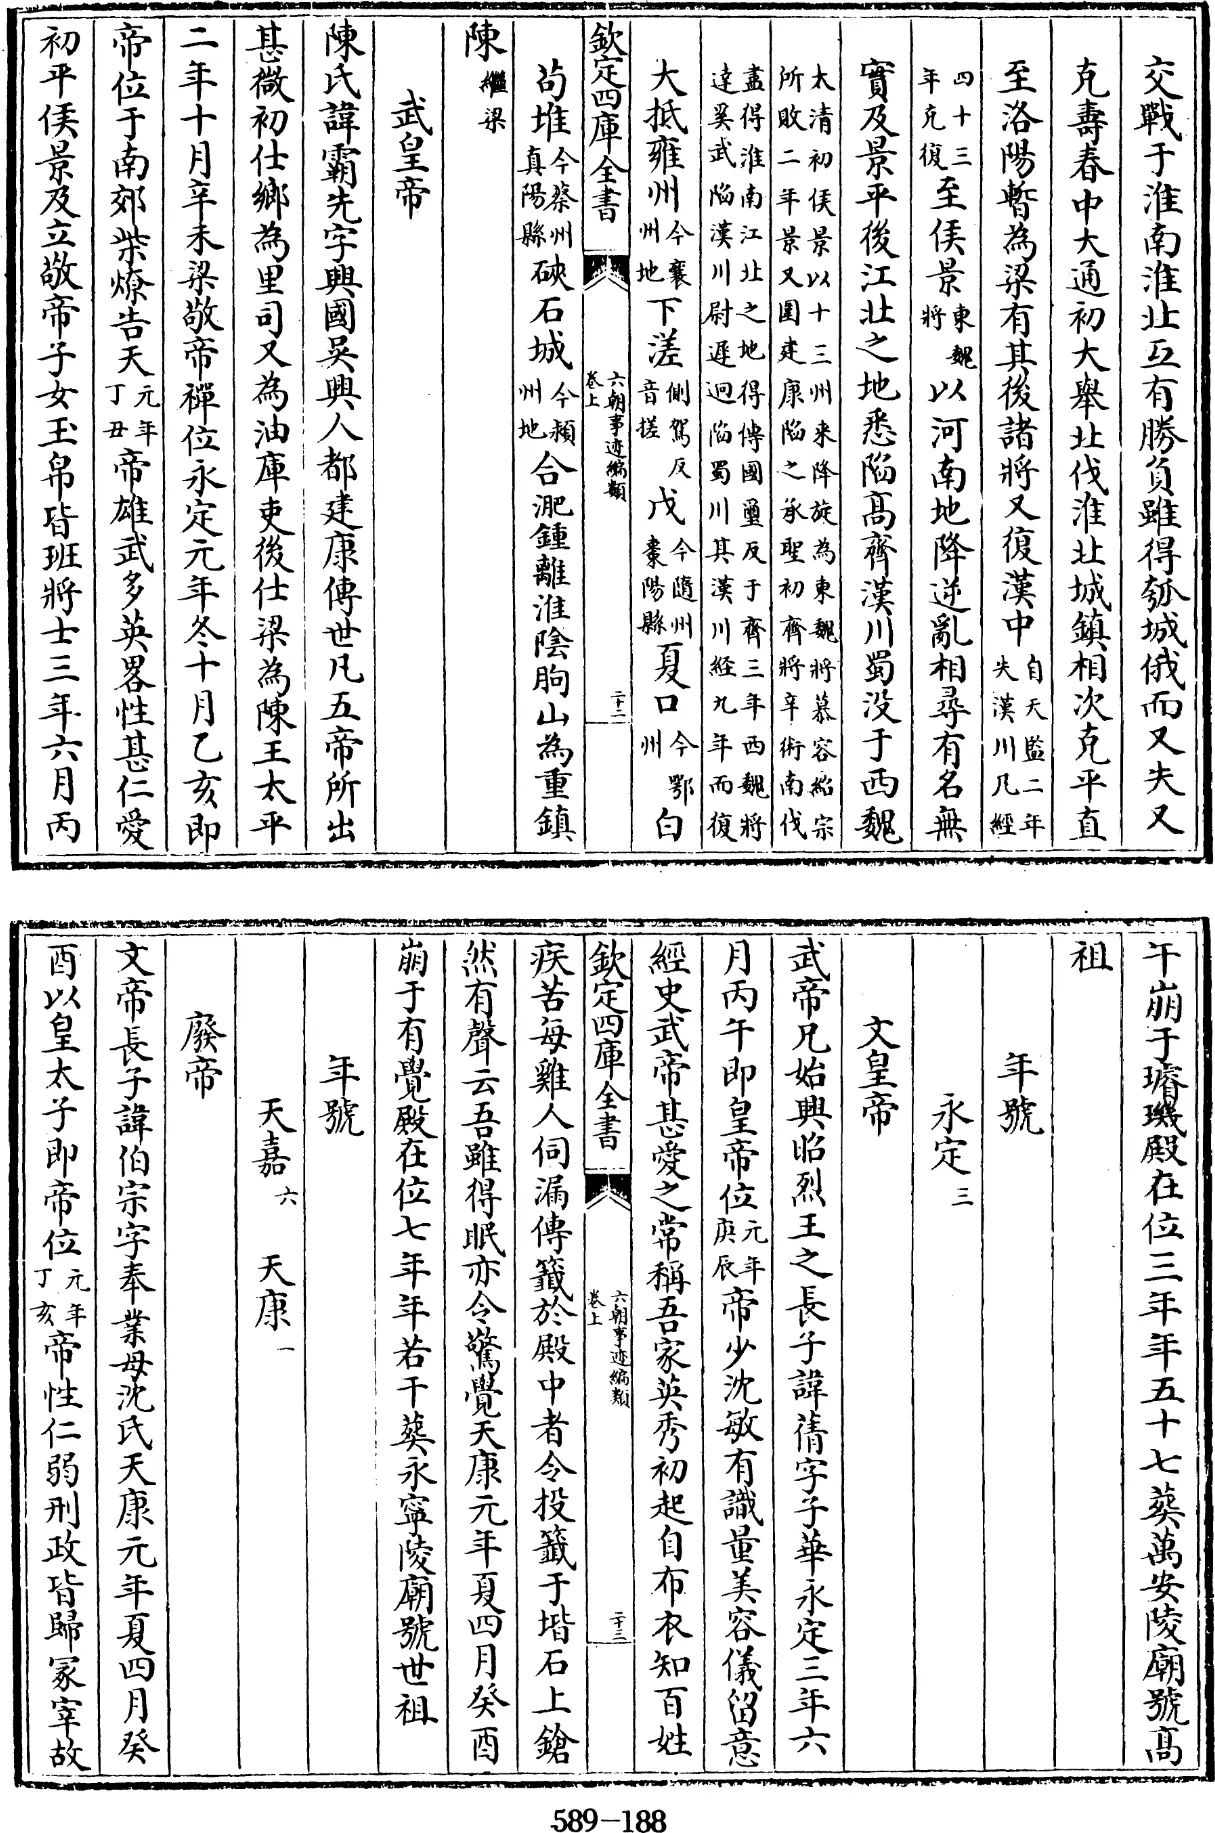 交戰于淮南淮北互有勝負雖得瓠城俄而又失又
克壽春中大通初大舉北伐淮北城鎮相次克平直
至洛陽暫為梁有其後諸將又復漢中自天監二年失漢川凡經
四十三年克復至侯景東魏將以河南地降逆亂相尋有名無
實及景平後江北之地悉陷高齊漢川蜀没于西魏
太清初侯景以十三州来降旋為東魏將慕容紹宗
所敗二年景又圍建康陷之承聖初齊將辛術南伐
盡得淮南江北之地得傳國璽反于齊三年西魏將
達奚武陷漢川尉遲迥陷蜀川其漢川經九年而復
大抵雍州今襄州地下溠側駕反音搓戍今隨州棗陽縣夏口今鄂州白
欽定四庫全書
六朝事迹編類
卷上
二十二
茍堆今蔡州真陽縣硤石城今潁州地合淝鍾離淮陰朐山為重鎮
陳繼梁
武皇帝
陳氏諱霸先字興國吴興人都建康傳世凡五帝所出
甚微初仕鄉為里司又為油庫吏後仕梁為陳王太平
二年十月辛未梁敬帝禪位永定元年冬十月乙亥即
帝位于南郊柴燎告天元年丁丑帝雄武多英畧性甚仁愛
初平侯景及立敬帝子女玉帛皆班將士三年六月丙
午崩于璿璣殿在位三年年五十七葬萬安陵廟號高
祖
年號
永定三
文皇帝
武帝兄始興昭烈王之長子諱蒨字子華永定三年六
月丙午即皇帝位元年庚辰帝少沈敏有識量美容儀留意
經史武帝甚愛之常稱吾家英秀初起自布衣知百姓
欽定四庫全書
六朝事迹編類
卷上
二十三
疾苦每雞人伺漏傳籤於殿中者令投籤于堦石上鎗
然有聲云吾雖得眠亦令驚覺天康元年夏四月癸酉
崩于有覺殿在位七年年若干葬永寧陵廟號世祖
年號
天嘉六 天康一
廢帝
文帝長子諱伯宗字奉業母沈氏天康元年夏四月癸
酉以皇太子即帝位元年丁亥帝性仁弱刑政皆歸冢宰故
589-188